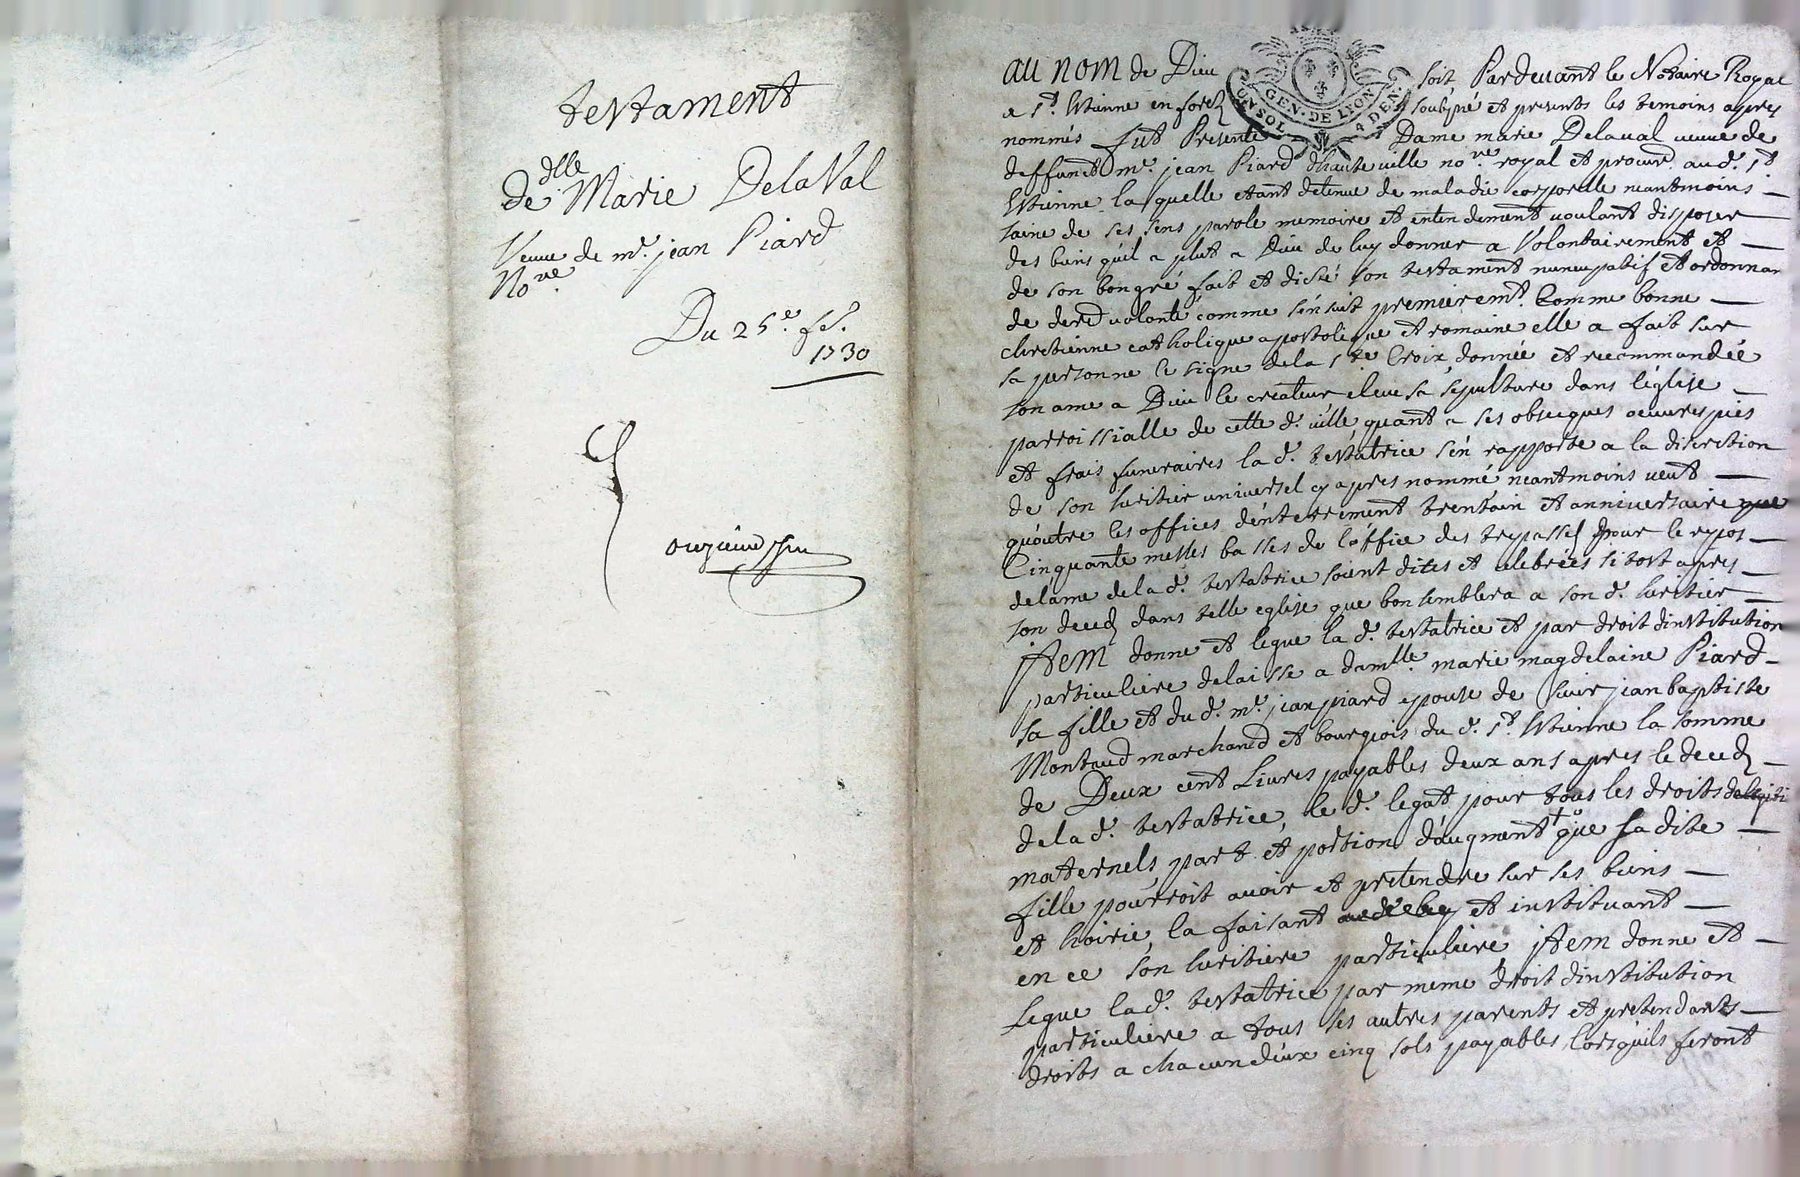 testament
de dlle Marie DelaVal
Veuve de mr. jean Piard
Nore.
Du 25e. fs.
1730
GEN. DE LYON
UN SOL 4 DEN.
au nom de Dieu soit, Pardevant le Notaire Royal
a st. Etienne en forez soubsné et presents les temoins apres
nommés fut Presente Dame marie Delaval veuve de
deffunct mr. jean Piard dhauteville nore. royal et procur. aud. st.
Etienne laquelle etant detenue de maladie corporelle neantmoins
saine de ses sens parole memoire et entendement voulant disposer
des biens quil a plut a Dieu de luy donner a Volontairement et
de son bongré fait et dicté son testament nuncupatif et ordonnan
de dere volonté comme sénsuit premieremt. Comme bonne
chretienne catholique apostolique et romaine elle a fait sur
sa personne le signe dela ste Croix, donnée et recommandée
son ame a Dieu le createur eleu sa sepulture dans léglise
parroissialle de cette d. ville, quant a ses obseques oeuvres pies
et frais funeraires la d. testatrice sén rapporte a la discretion
de son heritier universel cy apres nommé neantmoins veut
quóutre les offices dénterrement trentain et anniversaire que
Cinquante messes basses de lóffice des trepassez pour le repos
delame dela d. testatrice soient dites et celebrées sitost apres
son decez dans telle eglise que bon semblera a son d. heritier
jtem donne et legue la d. testatrice et par droit dinstitution
particuliere delaisse a damlle marie magdelaine Piard
sa fille et du d. mr. jean piard epouse de sieur jean baptiste
Montaud marchand et bourgois du d. st Etienne la somme
de Deux cent Livres payables deux ans apres le decez
dela d. testatrice, le d. legat pour tous les droits
maternels part et portion daugment que sa dite
fille pourroit avoir et pretendre sur ses biens
et hoirie, la faisant et instituant
en ce son heritiere particuliere jtem donne et
Legue lad. testatrice par meme droit dinstitution
particuliere a tous ses autres parents et pretendants
droits a chacun déux cinq sols payables lorsquils feront